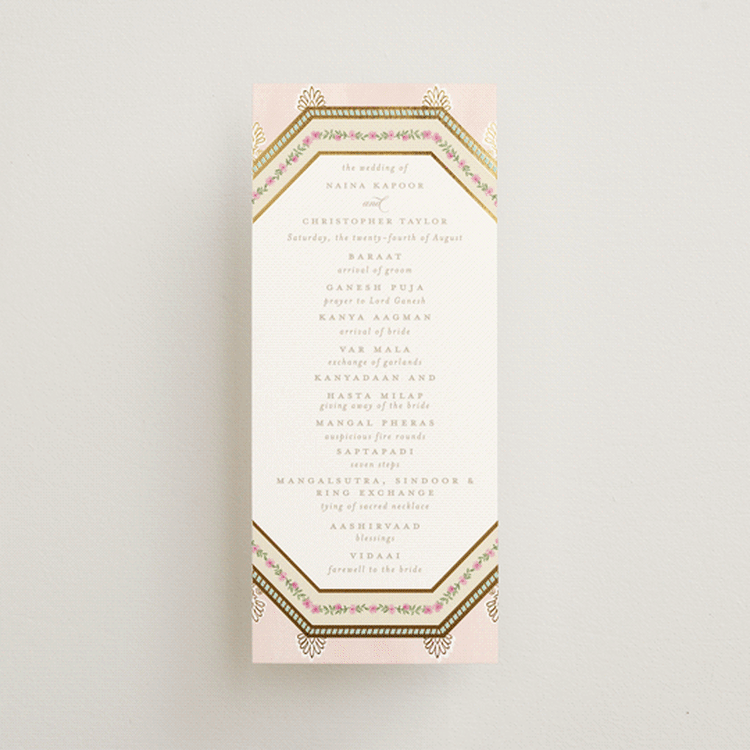 the wedding of
NAINA KAPOOR
and
CHRISTOPHER TAYLOR
Saturday, the twenty-fourth of August
BARAAT
arrival of groom
GANESH PUJA
prayer to Lord Ganesh
KANYA AAGMAN
arrival of bride
VAR MALA
exchange of garlands
KANYADAAN AND
HASTA MILAP
giving away of the bride
MANGAL PHERAS
auspicious fire rounds
SAPTAPADI
seven steps
MANGALSUTRA, SINDOOR &
RING EXCHANGE
tying of sacred necklace
AASHIRVAAD
blessings
VIDAAI
farewell to the bride